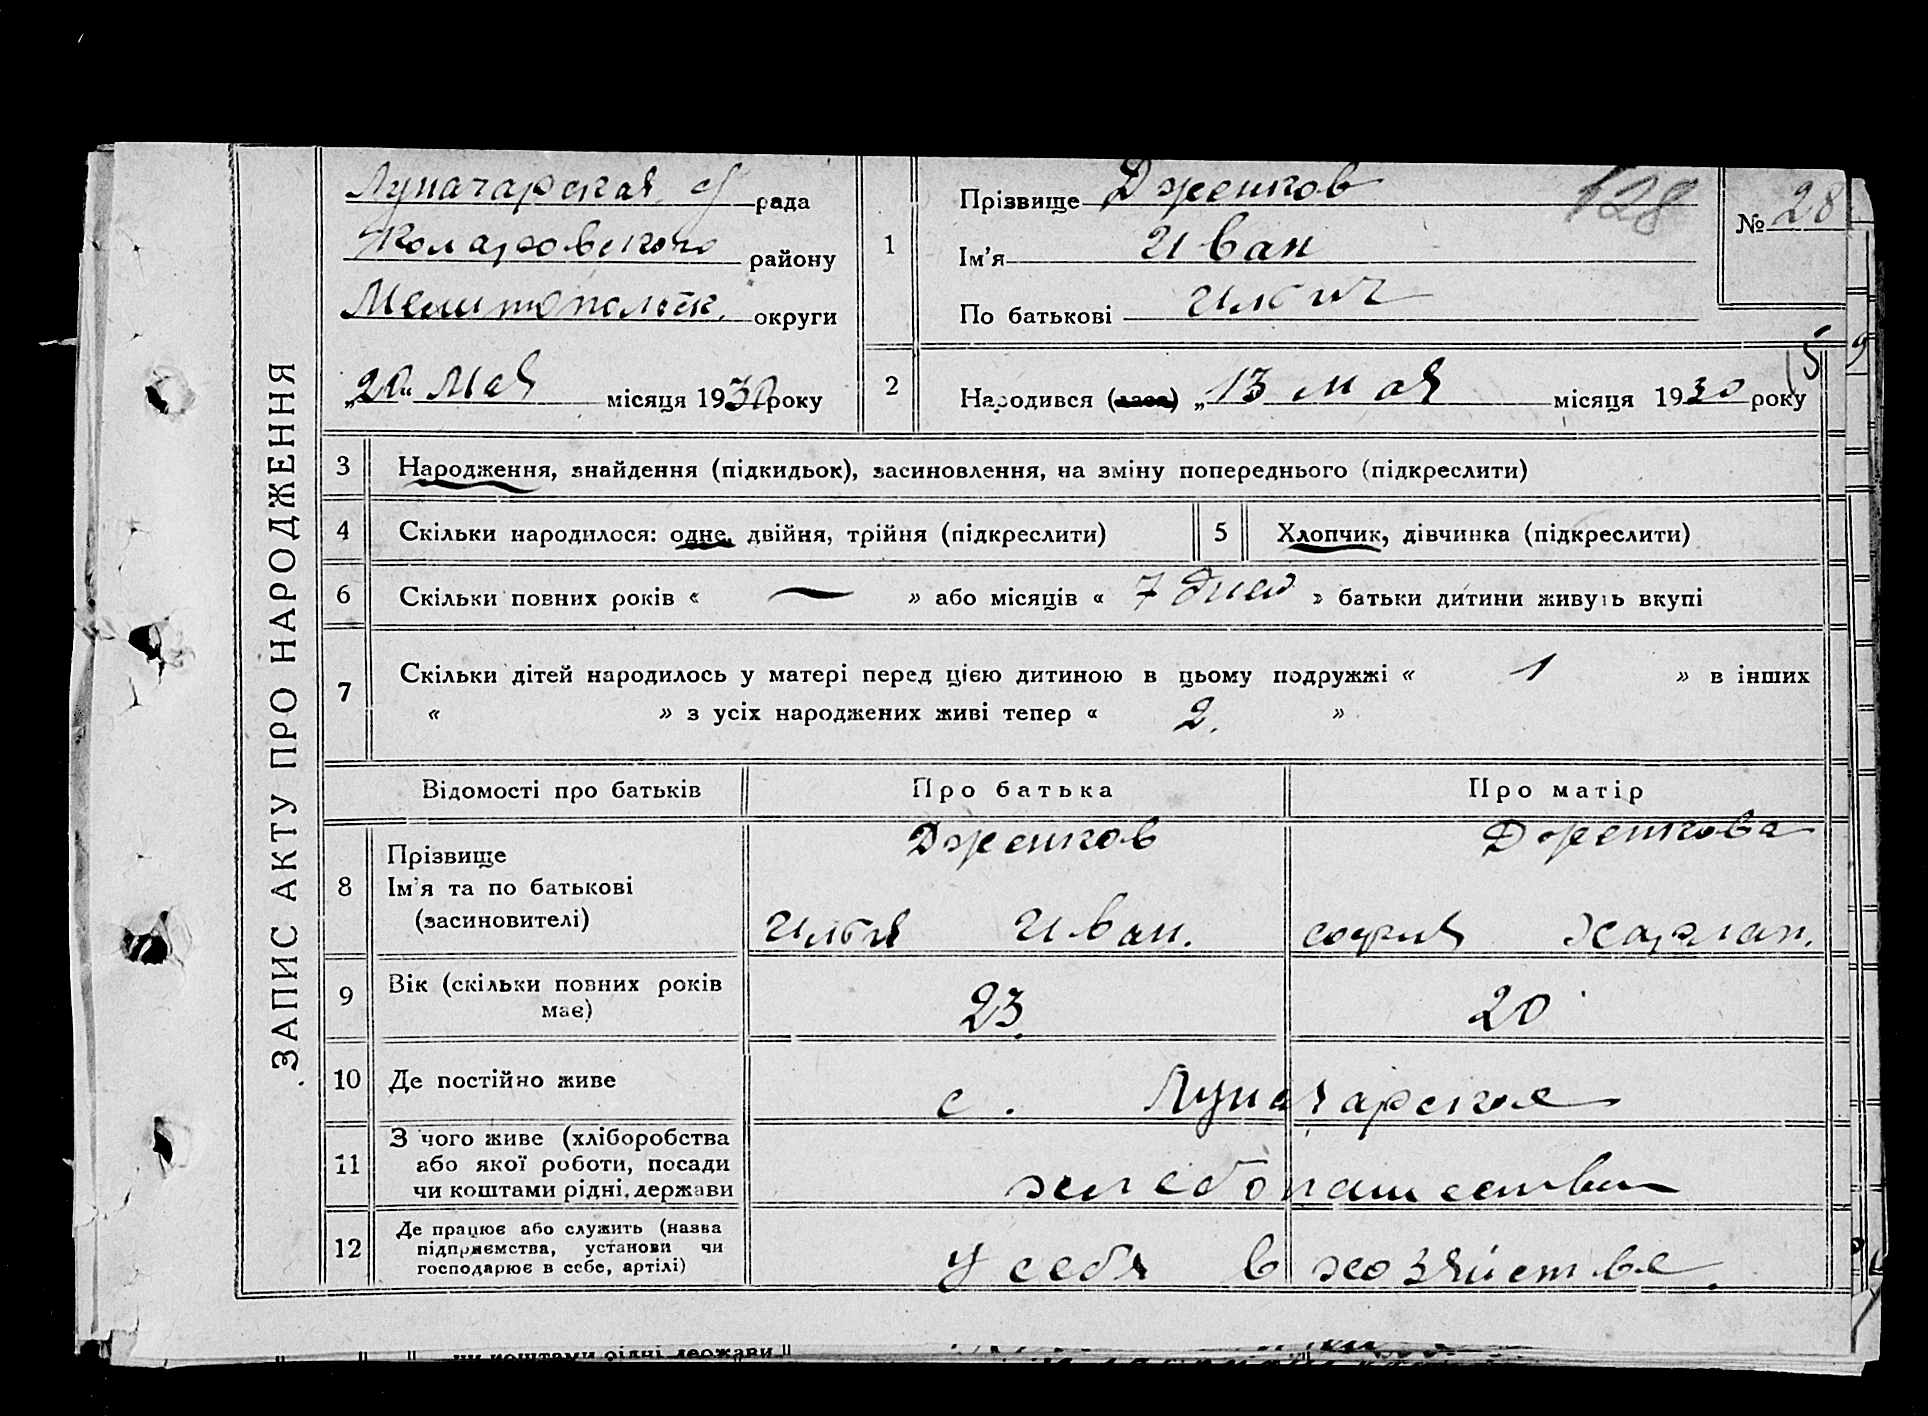 ЗАПИС АКТУ ПРО НАРОДЖЕННЯ
Луначарская с/ рада
Коларовского району
Мелитопольск. округи
„20“ Мая місяця 1930 року
1
Прізвище Дженков
Ім’я Иван
По батькові Ильич
128
№ 28
2
Народився (лася) „13 мая місяця 1930 року
15
3 Народження, знайдення (підкидьок), засиновлення, на зміну попереднього (підкреслити)
4 Скільки народилося: одне, двійня, трійня (підкреслити)
5 Хлопчик, дівчинка (підкреслити)
6 Скільки повних років « — » або місяців « 7 дней » батьки дитини живуть вкупі
7 Скільки дітей народилось у матері перед цією дитиною в цьому подружжі « 1 » в інших
« » з усіх народжених живі тепер « 2. »
Відомості про батьків Про батька Про матір
8 Прізвище
Ім’я та по батькові
(засиновителі)
Дженков
Илья Иван.
Дженкова
София Харлан.
9 Вік (скільки повних років
має)
23
20
10 Де постійно живе
с. Луначарское
11 З чого живе (хліборобства
або якої роботи, посади
чи коштами рідні, держави
хлебопашеством
12 Де працює або служить (назва
підприємства, установи чи
господарює в себе, артілі)
У себя в хозяйстве.
чи коштами рідні, держави